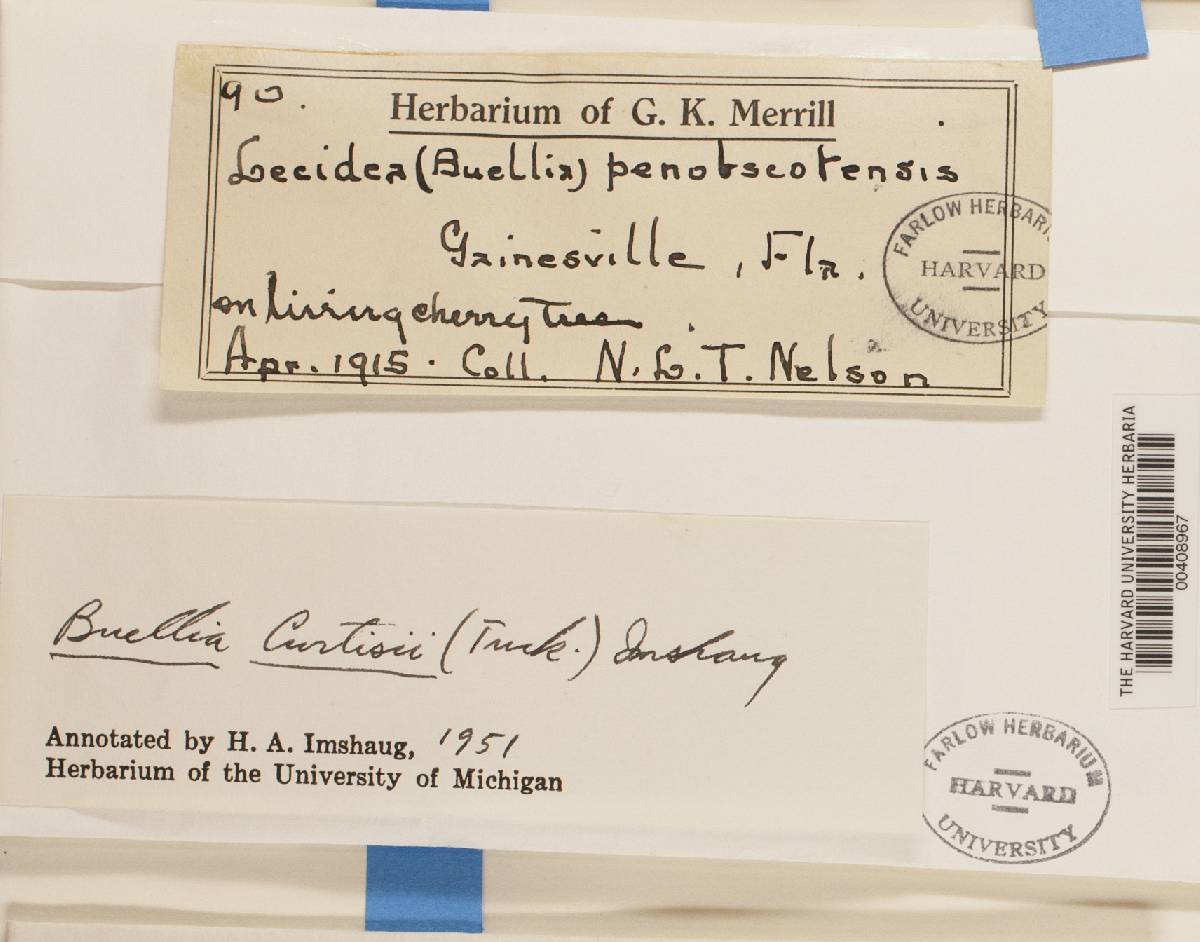 90.
Herbarium of G. K. Merrill
Lecidea (Buellia) penobscotensis
Gainesville, Fla.
on living cherry tree.
Apr. 1915. Coll. N. L. T. Nelson
FARLOW HERBARI
HARVARD
UNIVERSITY
THE HARVARD UNIVERSITY HERBARIA
00408967
Buellia Curtisii (Tuck.) Imshaug
Annotated by H. A. Imshaug, 1951
Herbarium of the University of Michigan
FARLOW HERBARIUM
HARVARD
UNIVERSITY